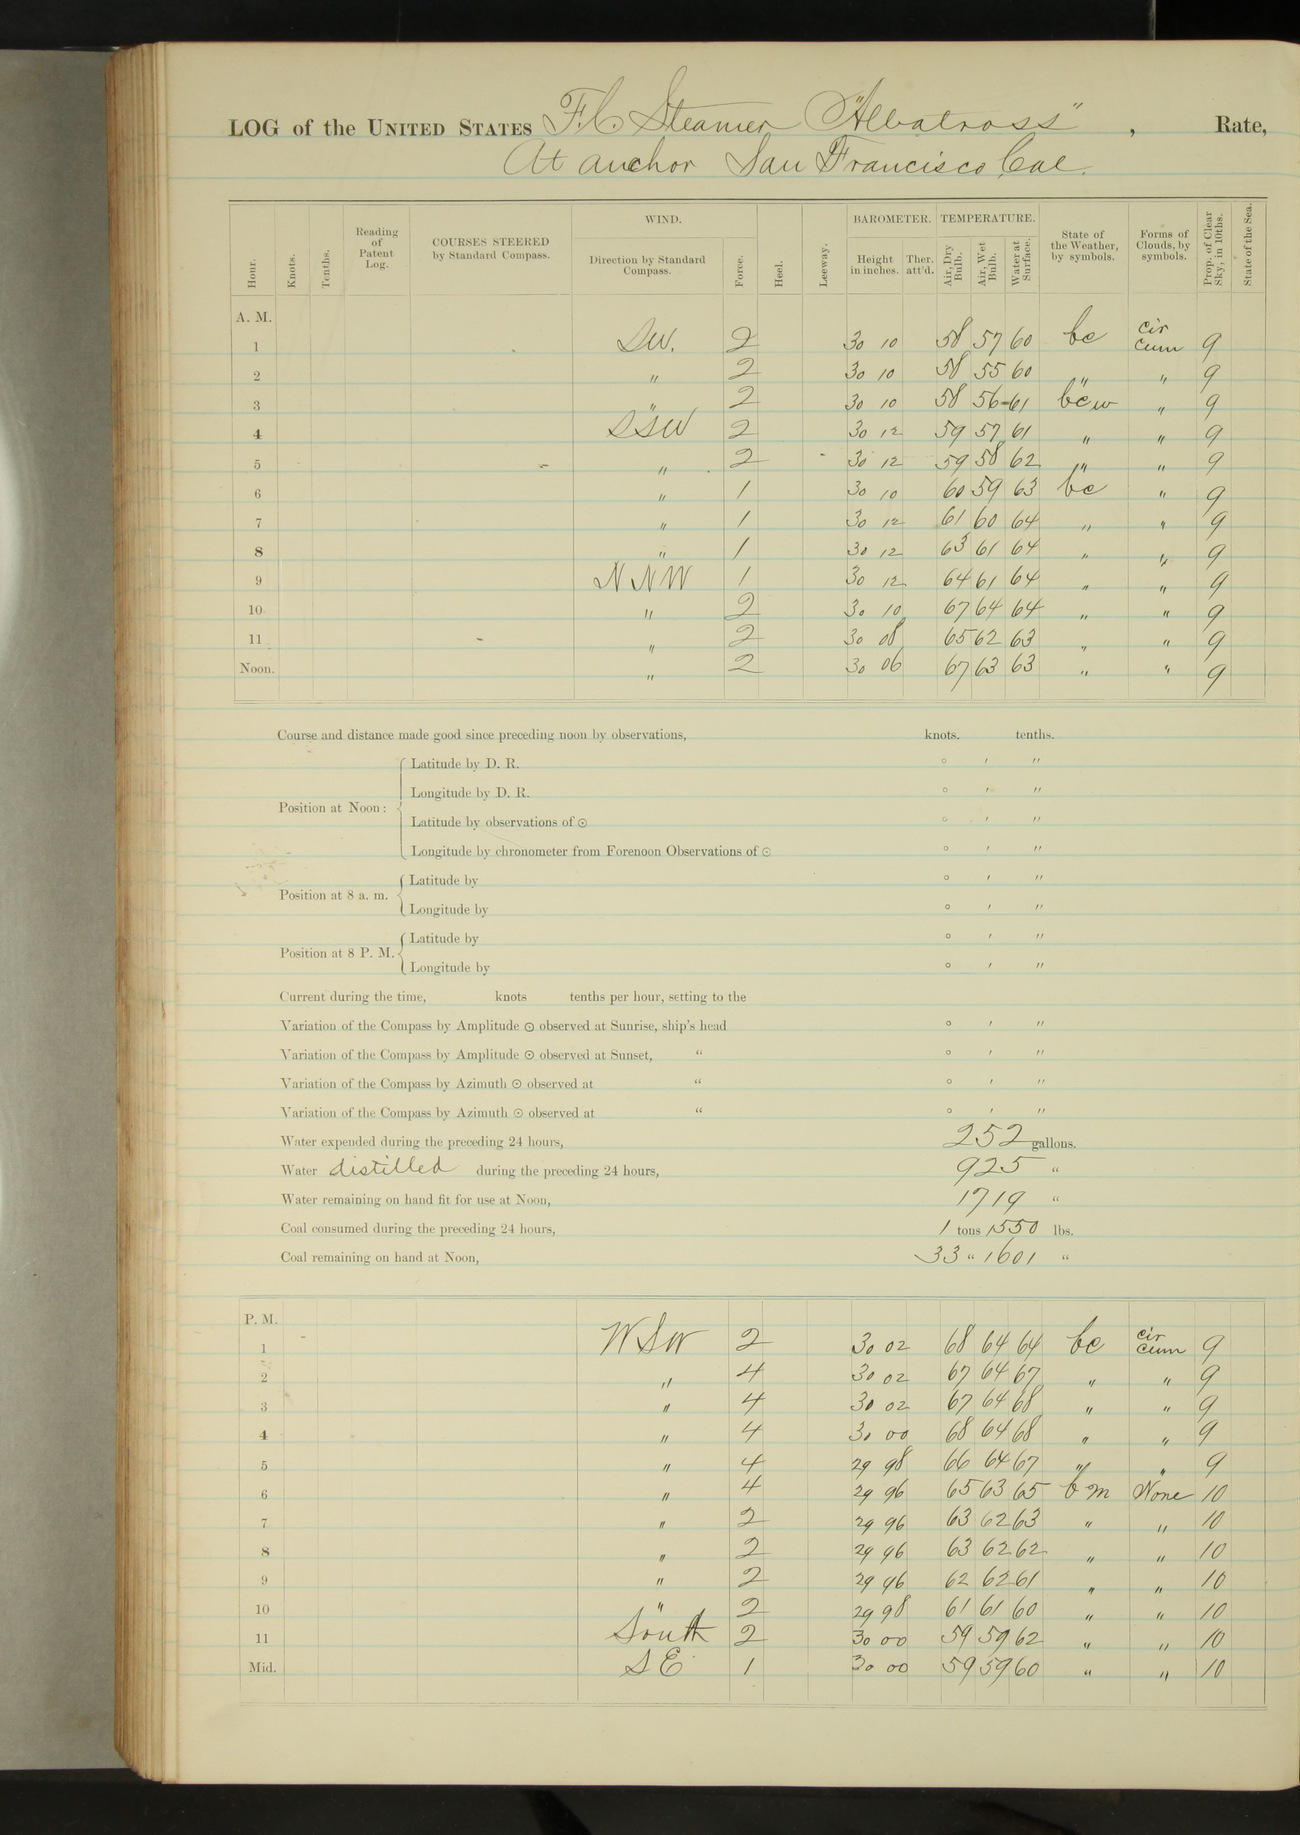 LOG of the UNITED STATES F.C. Steamer "Albatross", Rate,
At anchor San Francisco Cal.
Hour. Knots. Tenths. Reading of Patent Log. COURSES STEERED by Standard Compass. WIND. Direction by Standard Compass. Force. Heel. Leeway. BAROMETER. Height in inches. Ther. att'd. TEMPERATURE. Air, Dry Bulb. Air, Wet Bulb. Water at Surface. State of the Weather, by symbols. Forms of Clouds, by symbols. Prop. of Clear Sky, in 10ths. State of the Sea.
A. M.
1 SW. 2 30 10 58 57 60 bc cir cum 9
2 " 2 30 10 58 55 60 " " 9
3 " 2 30 10 58 56 61 bcw " 9
4 SSW 2 30 12 59 57 61 " " 9
5 " 2 30 12 59 58 62 " " 9
6 " 1 30 10 60 59 63 bc " 9
7 " 1 30 12 61 60 64 " " 9
8 " 1 30 12 63 61 64 " " 9
9 NNW 1 30 12 64 61 64 " " 9
10 " 2 30 10 67 64 64 " " 9
11 " 2 30 08 65 62 63 " " 9
Noon. " 2 30 06 67 63 63 " " 9
Course and distance made good since preceding noon by observations, knots. tenths.
Position at Noon: Latitude by D. R. ° ' "
Longitude by D. R. ° ' "
Latitude by observations of ☉ ° ' "
Longitude by chronometer from Forenoon Observations of ☉ ° ' "
Position at 8 a. m. Latitude by ° ' "
Longitude by ° ' "
Position at 8 P. M. Latitude by ° ' "
Longitude by ° ' "
Current during the time, knots tenths per hour, setting to the
Variation of the Compass by Amplitude ☉ observed at Sunrise, ship's head ° ' "
Variation of the Compass by Amplitude ☉ observed at Sunset, " ° ' "
Variation of the Compass by Azimuth ☉ observed at " ° ' "
Variation of the Compass by Azimuth ☉ observed at " ° ' "
Water expended during the preceding 24 hours, 252 gallons.
Water distilled during the preceding 24 hours, 925 "
Water remaining on hand fit for use at Noon, 1719 "
Coal consumed during the preceding 24 hours, 1 tons 1550 lbs.
Coal remaining on hand at Noon, 33 " 1601 "
P. M.
1 WSW 2 30 02 68 64 64 bc cir cum 9
2 " 4 30 02 67 64 67 " " 9
3 " 4 30 02 67 64 68 " " 9
4 " 4 30 00 68 64 68 " " 9
5 " 4 29 98 66 64 67 " " 9
6 " 4 29 96 65 63 65 b m None 10
7 " 2 29 96 63 62 63 " " 10
8 " 2 29 96 63 62 62 " " 10
9 " 2 29 96 62 62 61 " " 10
10 " 2 29 98 61 61 60 " " 10
11 South 2 30 00 59 59 62 " " 10
Mid. SE 1 30 00 59 59 60 " " 10